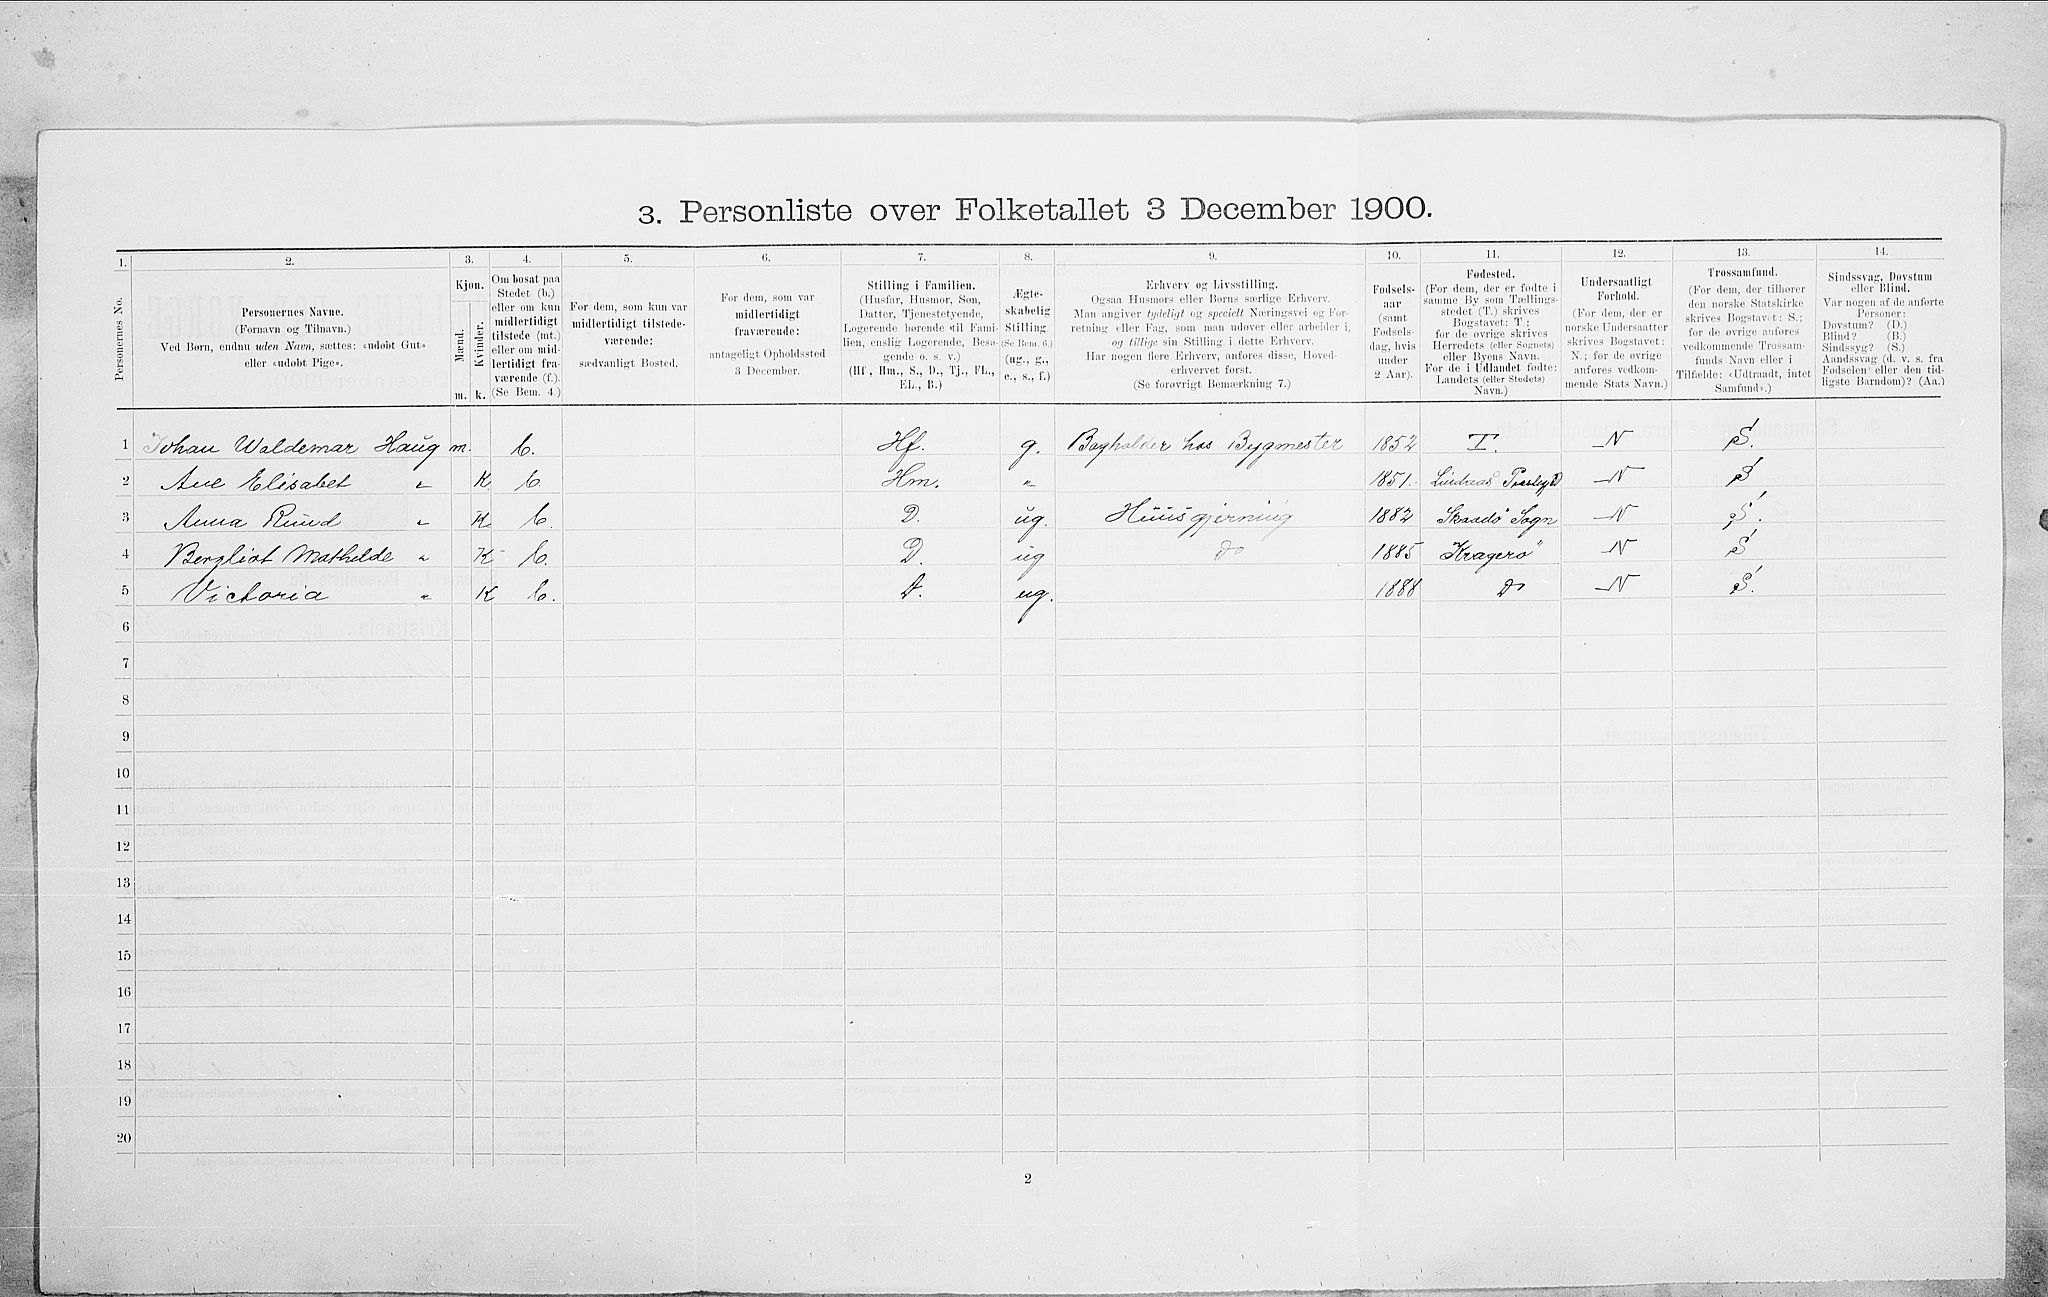 3. Personliste over Folketallet 3 December 1900.
1. 2. 3. 4. 5. 6. 7. 8. 9. 10. 11. 12. 13. 14.
Personernes No.
Personernes Navne.
(Fornavn og Tilnavn.)
Ved Børn, endnu uden Navn, sættes: «udøbt Gut»
eller «udøbt Pige».
Kjøn.
Mænd.
Kvinder.
m. k.
Om bosat paa
Stedet (b.)
eller om kun
midlertidigt
tilstede (mt.)
eller om mid-
lertidigt fra-
værende (f.).
(Se Bem. 4.)
For dem, som kun var
midlertidigt tilstede-
værende:
sædvanligt Bosted.
For dem, som var
midlertidigt
fraværende:
antageligt Opholdssted
3 December.
Stilling i Familien.
(Husfar, Husmor, Søn,
Datter, Tjenestetyende,
Logerende hørende til Fami-
lien, enslig Logerende, Besø-
gende o. s. v.)
(Hf., Hm., S., D., Tj., FL.,
EL., B.)
Ægte-
skabelig
Stilling.
(Se Bem. 6.)
(ug., g.,
e., s., f.)
Erhverv og Livsstilling.
Ogsaa Husmors eller Børns særlige Erhverv.
Man angiver tydeligt og specielt Næringsvei og For-
retning eller Fag, som man udøver eller arbeider i,
og tillige sin Stilling i dette Erhverv.
Har nogen flere Erhverv, anføres disse, Hoved-
erhvervet først.
(Se forøvrigt Bemærkning 7.)
Fødsels-
aar
(samt
Fødsels-
dag, hvis
under
2 Aar).
Fødested.
(For dem, der er fødte i
samme By som Tællings-
stedet (T.) skrives
Bogstavet: T;
for de øvrige skrives
Herredets (eller Sognets)
eller Byens Navn.
For de i Udlandet fødte:
Landets (eller Stedets)
Navn.)
Undersaatligt
Forhold.
(For dem, der er
norske Undersaatter
skrives Bogstavet:
N.; for de øvrige
anføres vedkom-
mende Stats Navn.)
Trossamfund.
(For dem, der tilhører
den norske Statskirke
skrives Bogstavet: S.;
for de øvrige anføres
vedkommende Trossam-
funds Navn eller i
Tilfælde: «Udtraadt, intet
Samfund».)
Sindssvag, Døvstum
eller Blind.
Var nogen af de anførte
Personer:
Døvstum? (D.)
Blind? (B.)
Sindssyg? (S.)
Aandssvag (d. v. s. fra
Fødselen eller den tid-
ligste Barndom)? (Aa.)
1 Johan Waldemar Haug m. b. Hf. g. Bogholder hos Bygmester 1852 T. N S.
2 Ane Elisabet " K. b. Hm. " 1851. N S
3 Anna Rund " K b. D. ug. Huusgjerning 1882 Skaadø Sogn N S.
4 Bergliot Mathelde " K b. D. ug do 1885 Kragerø N S
5 Victoria " K b. D. ug. 1888 do N S.
6
7
8
9
10
11
12
13
14
15
16
17
18
19
20
2